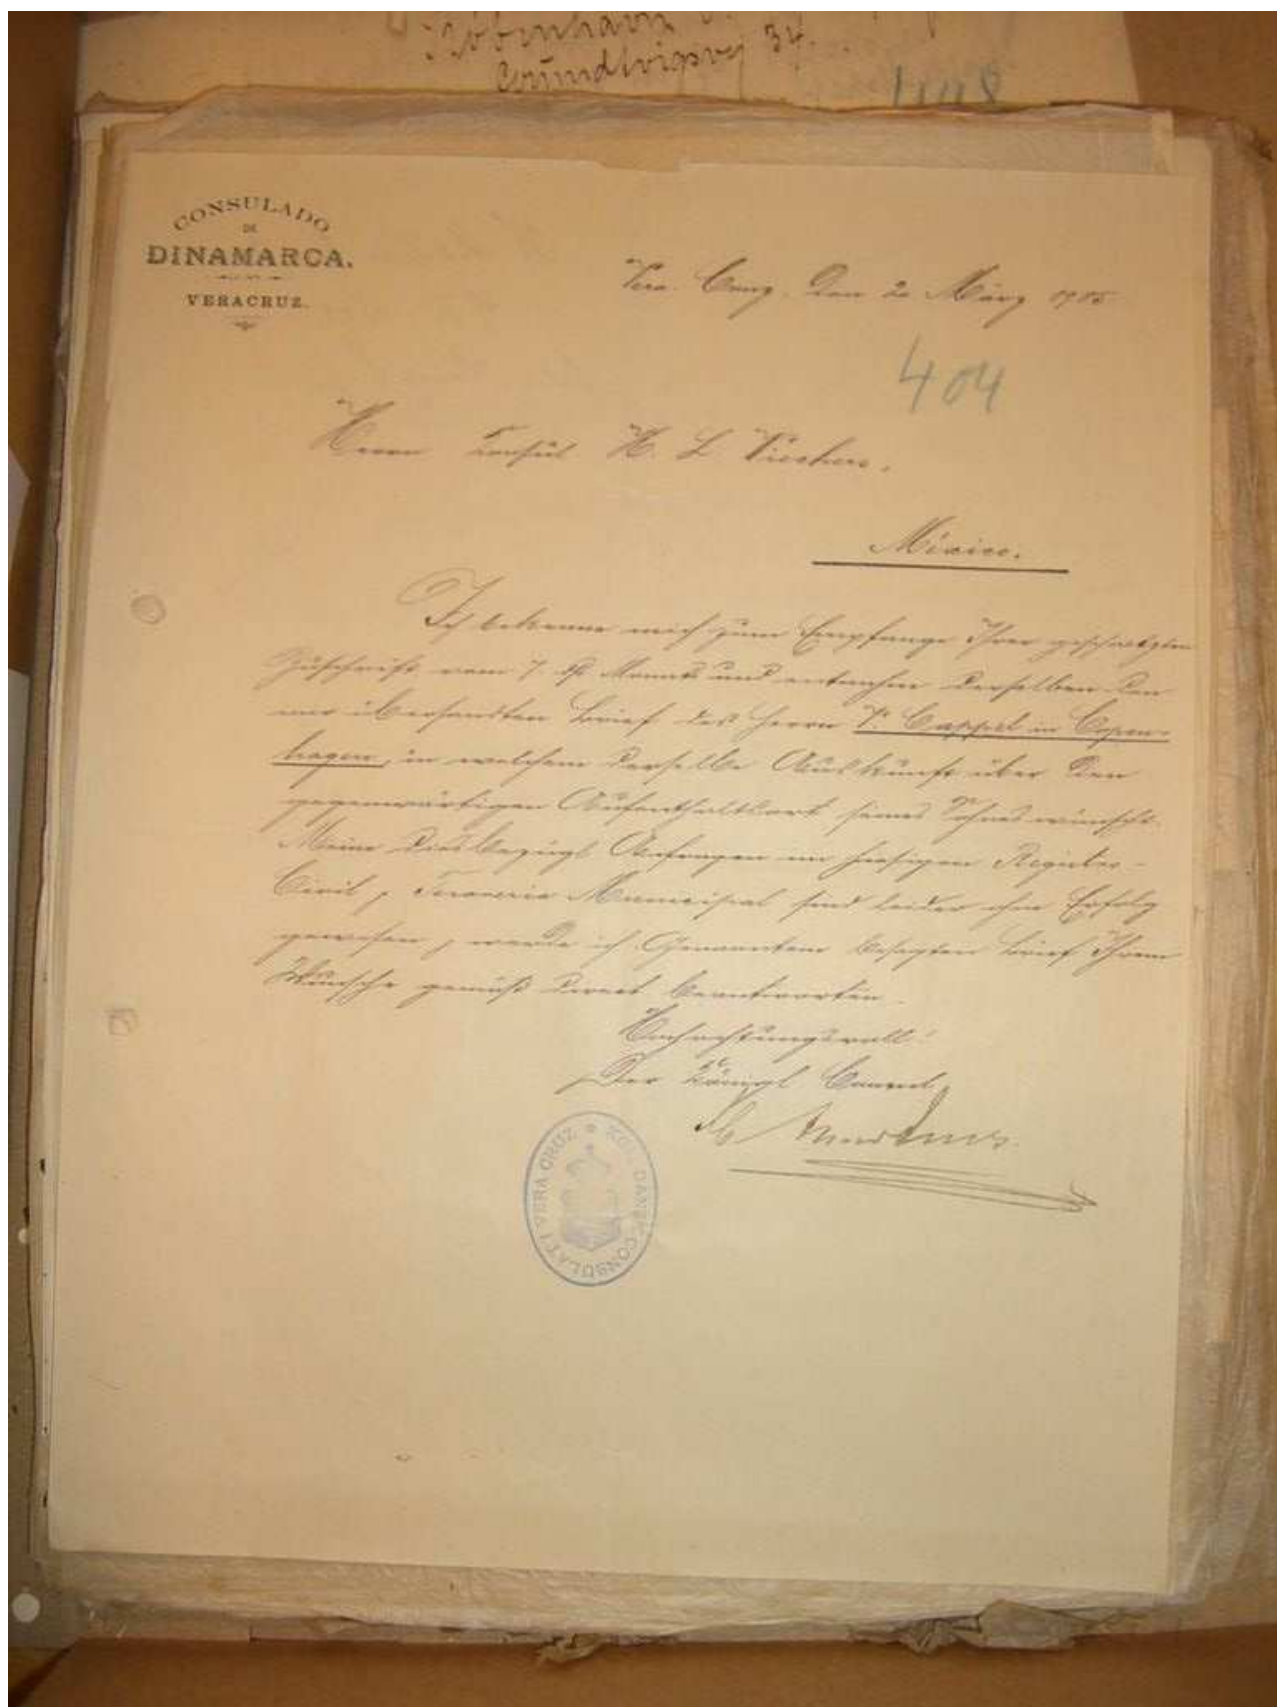 København
Grundtvigsvej 34.
CONSULADO
DE
DINAMARCA.
VERACRUZ.
Vera Cruz, den 20 März
404
Herrn Konsul H. L. Wiechers.
Mexico.
Ich bekenne mich zum Empfange Ihrer geschätzten
Zuschrift vom 7. ds Monats und entnahm derselben den
mir übersandten Brief des Herrn V. Cappel in Copen-
hagen, in welchem derselbe Auskunft über den
gegenwärtigen Aufenthaltsort seines Sohnes wünscht.
Meine diesbezügl Anfragen im hiesigen Register-
Civil, Municipal sind leider ohne Erfolg
gewesen, werde ich Genanntem besagten Brief Ihrem
Wunsche gemäß direct beantworten.
Hochachtungsvoll!
Der Königl Consul,
KGL. DANSK CONSULAT I VERA CRUZ